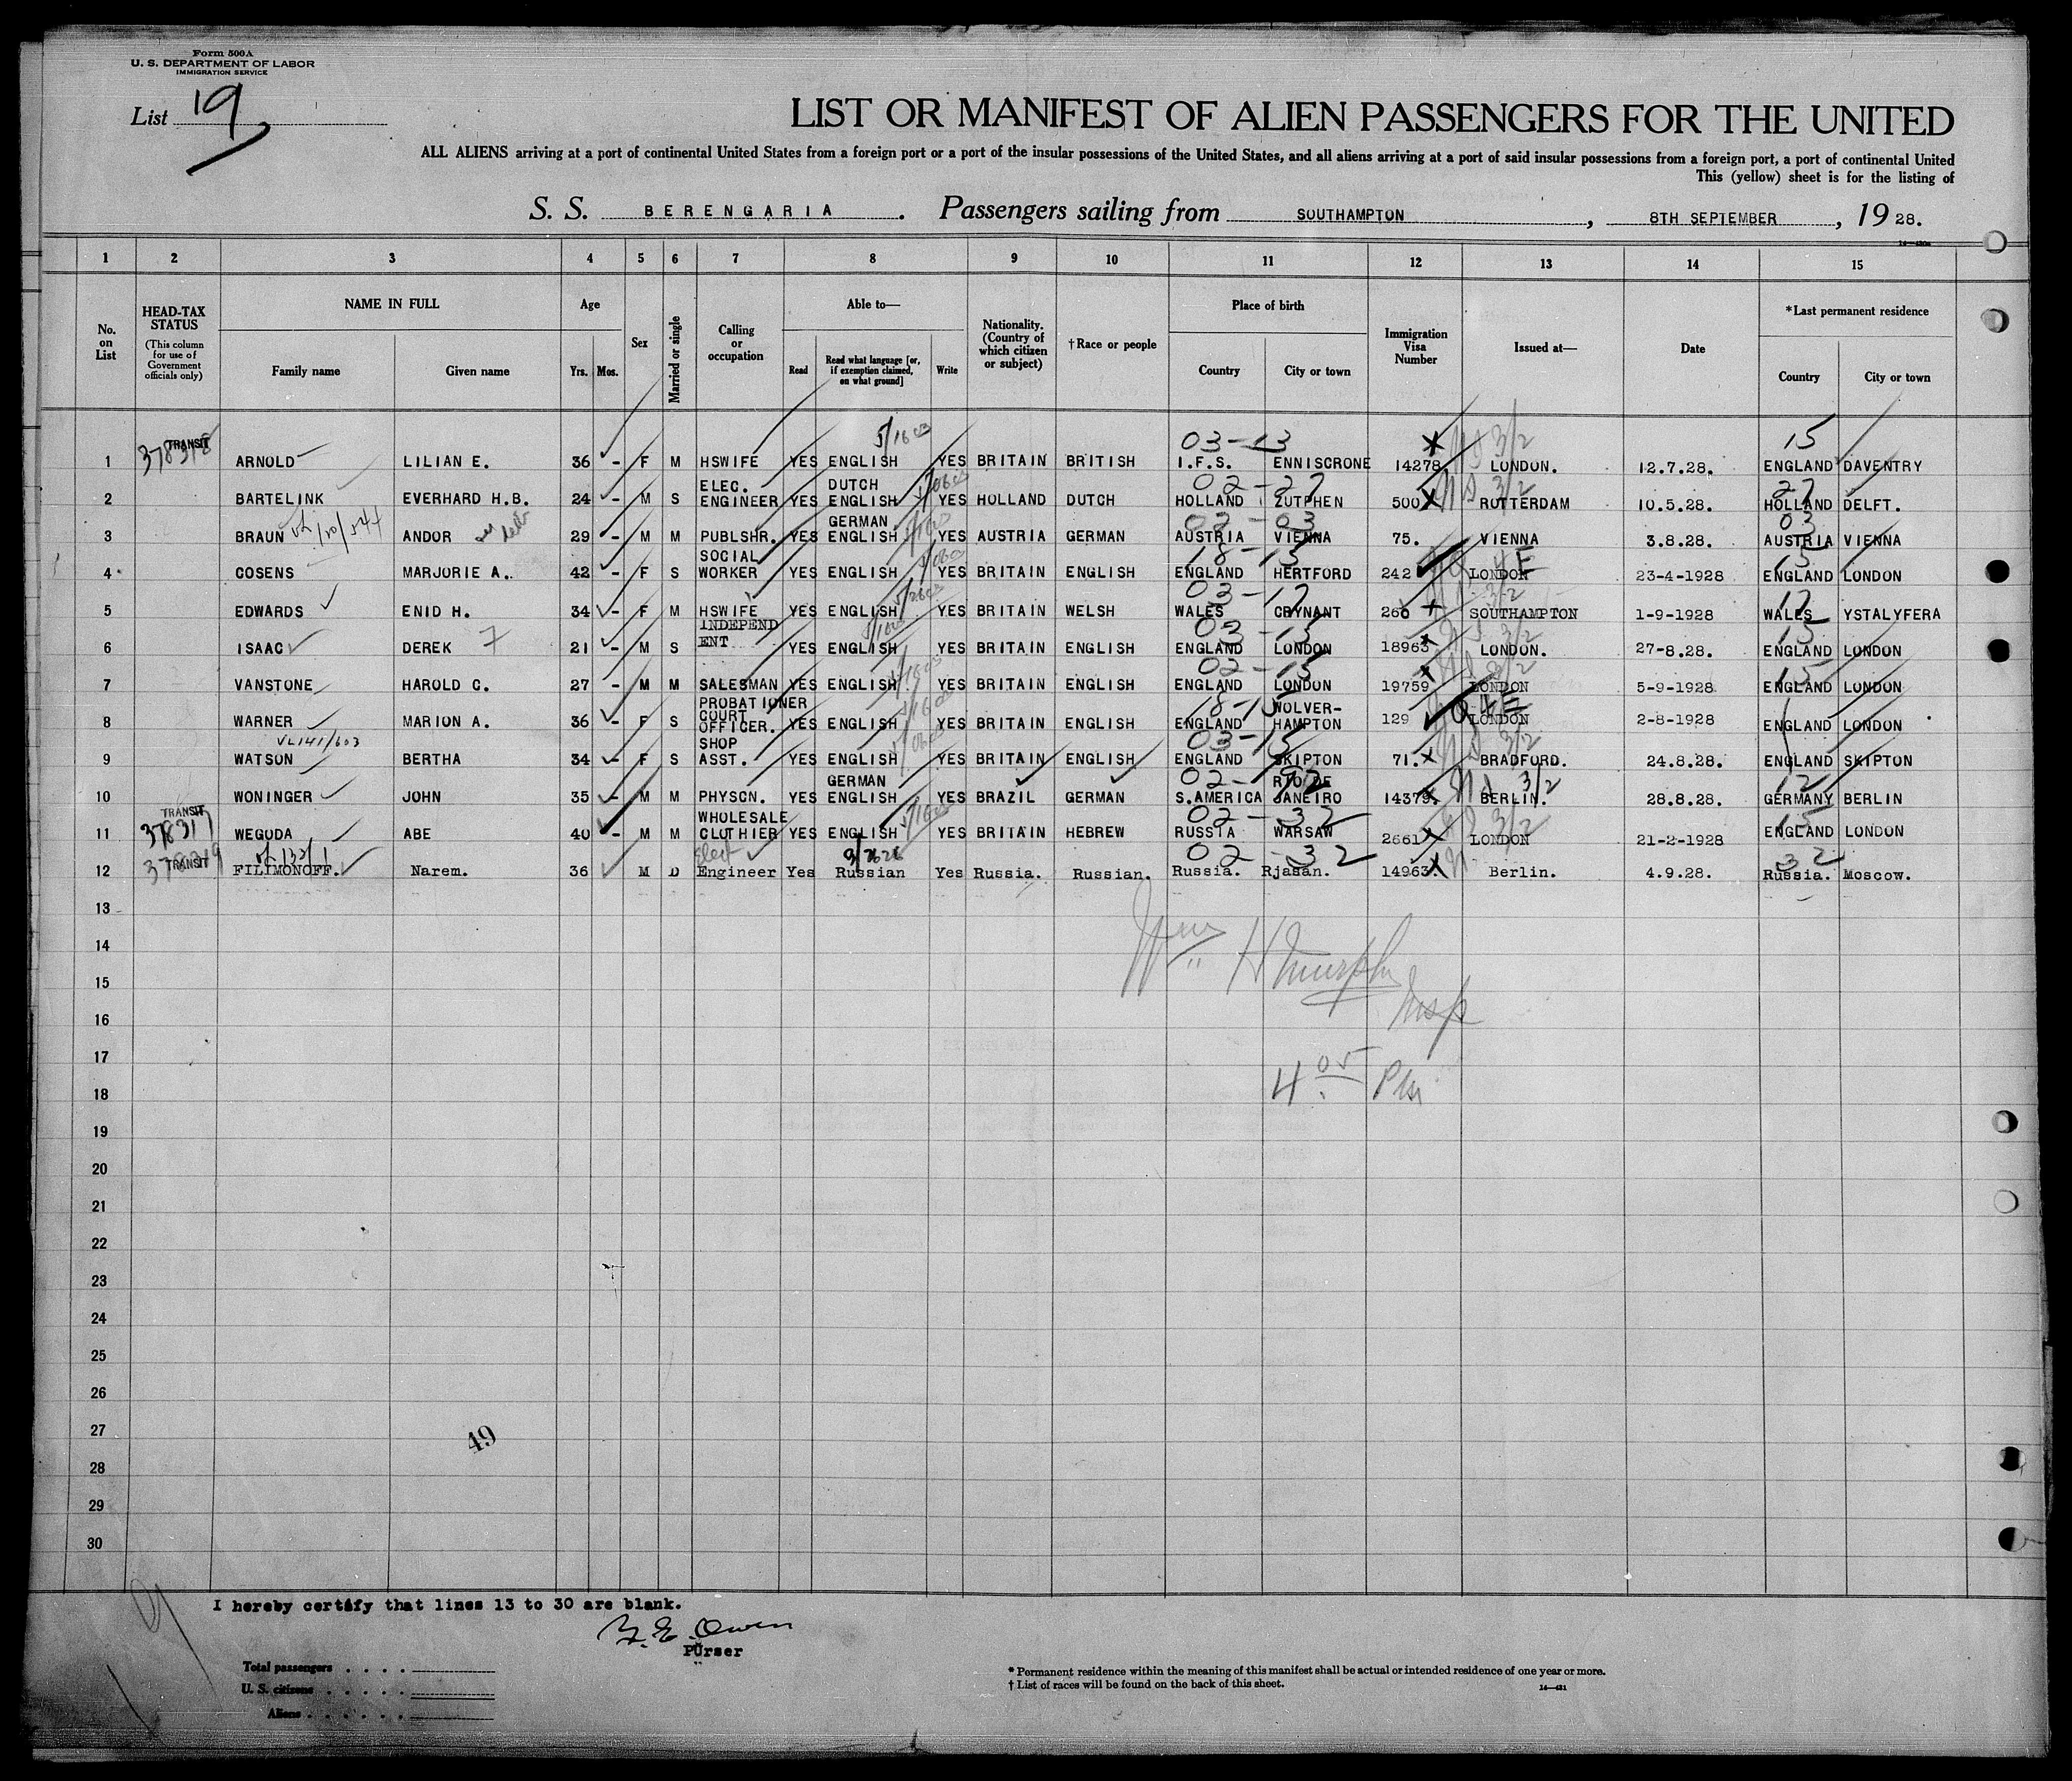 Form 500A
U. S. DEPARTMENT OF LABOR
IMMIGRATION SERVICE
List 19
LIST OR MANIFEST OF ALIEN PASSENGERS FOR THE UNITED
ALL ALIENS arriving at a port of continental United States from a foreign port or a port of the insular possessions of the United States, and all aliens arriving at a port of said insular possessions from a foreign port, a port of continental United
This (yellow) sheet is for the listing of
S. S. BERENGARIA. Passengers sailing from SOUTHAMPTON, 8TH SEPTEMBER, 1928.
1 2 3 4 5 6 7 8 9 10 11 12 13 14 15
No. on List
HEAD-TAX STATUS
(This column for use of Government officials only)
NAME IN FULL
Family name Given name
Age
Yrs. Mos.
Sex
Married or single
Calling or occupation
Able to—
Read
Read what language [or, if exemption claimed, on what ground]
Write
Nationality. (Country of which citizen or subject)
†Race or people
Place of birth
Country City or town
Immigration Visa Number
Issued at—
Date
*Last permanent residence
Country City or town
TRANSIT 378318 5/16 03-13 3/2 15
1 ARNOLD LILIAN E. 36 - F M HSWIFE YES ENGLISH YES BRITAIN BRITISH I.F.S. ENNISCRONE 14278 LONDON. 12.7.28. ENGLAND DAVENTRY
ELEC. DUTCH 02-27 3/2 27
2 BARTELINK EVERHARD H.B. 24 - M S ENGINEER YES ENGLISH YES HOLLAND DUTCH HOLLAND ZUTPHEN 500 ROTTERDAM 10.5.28. HOLLAND DELFT.
GERMAN 02-03 03
3 BRAUN ANDOR 29 - M M PUBLSHR. YES ENGLISH YES AUSTRIA GERMAN AUSTRIA VIENNA 75. VIENNA 3.8.28. AUSTRIA VIENNA
SOCIAL 18-15 15
4 COSENS MARJORIE A. 42 - F S WORKER YES ENGLISH YES BRITAIN ENGLISH ENGLAND HERTFORD 242 LONDON 23-4-1928 ENGLAND LONDON
03-17 3/2 17
5 EDWARDS ENID H. 34 - F M HSWIFE YES ENGLISH YES BRITAIN WELSH WALES CRYNANT 266 SOUTHAMPTON 1-9-1928 WALES YSTALYFERA
INDEPEND 03-15 3/2 15
6 ISAAC DEREK 7 21 - M S ENT YES ENGLISH YES BRITAIN ENGLISH ENGLAND LONDON 18963 LONDON. 27-8.28. ENGLAND LONDON
02-15 3/2 15
7 VANSTONE HAROLD C. 27 - M M SALESMAN YES ENGLISH YES BRITAIN ENGLISH ENGLAND LONDON 19759 LONDON 5-9-1928 ENGLAND LONDON
PROBATIONER COURT 18-15 WOLVER-
8 WARNER MARION A. 36 - F S OFFICER. YES ENGLISH YES BRITAIN ENGLISH ENGLAND HAMPTON 129 LONDON 2-8-1928 ENGLAND LONDON
VL141/603 SHOP 03-15 3/2
9 WATSON BERTHA 34 - F S ASST. YES ENGLISH YES BRITAIN ENGLISH ENGLAND SKIPTON 71. BRADFORD. 24.8.28. ENGLAND SKIPTON
GERMAN 02-92 RIO DE 3/2 12
10 WONINGER JOHN 35 - M M PHYSCN. YES ENGLISH YES BRAZIL GERMAN S.AMERICA JANEIRO 14379. BERLIN. 28.8.28. GERMANY BERLIN
TRANSIT 378317 WHOLESALE 02-32 3/2 15
11 WEGODA ABE 40 - M M CLOTHIER YES ENGLISH YES BRITAIN HEBREW RUSSIA WARSAW 2661 LONDON 21-2-1928 ENGLAND LONDON
TRANSIT 378319 Elect 02-32 32
12 FILIMONOFF. Narem. 36 M D Engineer Yes Russian Yes Russia. Russian. Russia. Rjasan. 14963. Berlin. 4.9.28. Russia. Moscow.
13
14
Wm H Murphy
15
Insp
16
17
4 05 PM
18
19
20
21
22
23
24
25
26
27
49
28
29
30
I hereby certify that lines 13 to 30 are blank.
Owen
Purser
Total passengers
U. S. citizens
Aliens
* Permanent residence within the meaning of this manifest shall be actual or intended residence of one year or more.
† List of races will be found on the back of this sheet.
14—431